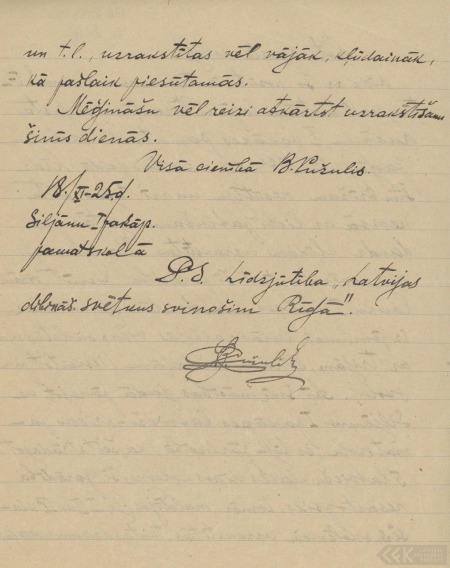 un t.l., uzrakstītas vēl vājāk, kļūdaināk,
kā pašlaik piesūtamās.
Mēģināšu vēl reizi atkārtot uzrakstīšanu
šinīs dienās.
Visā cienībā B. Pužulis.
18./XI-25.g.
Siljāņu I pakāp.
pamatskolā
P.S. Līdzjūtība „Latvijas
dibināš. svētkus svinošim Rīgā".